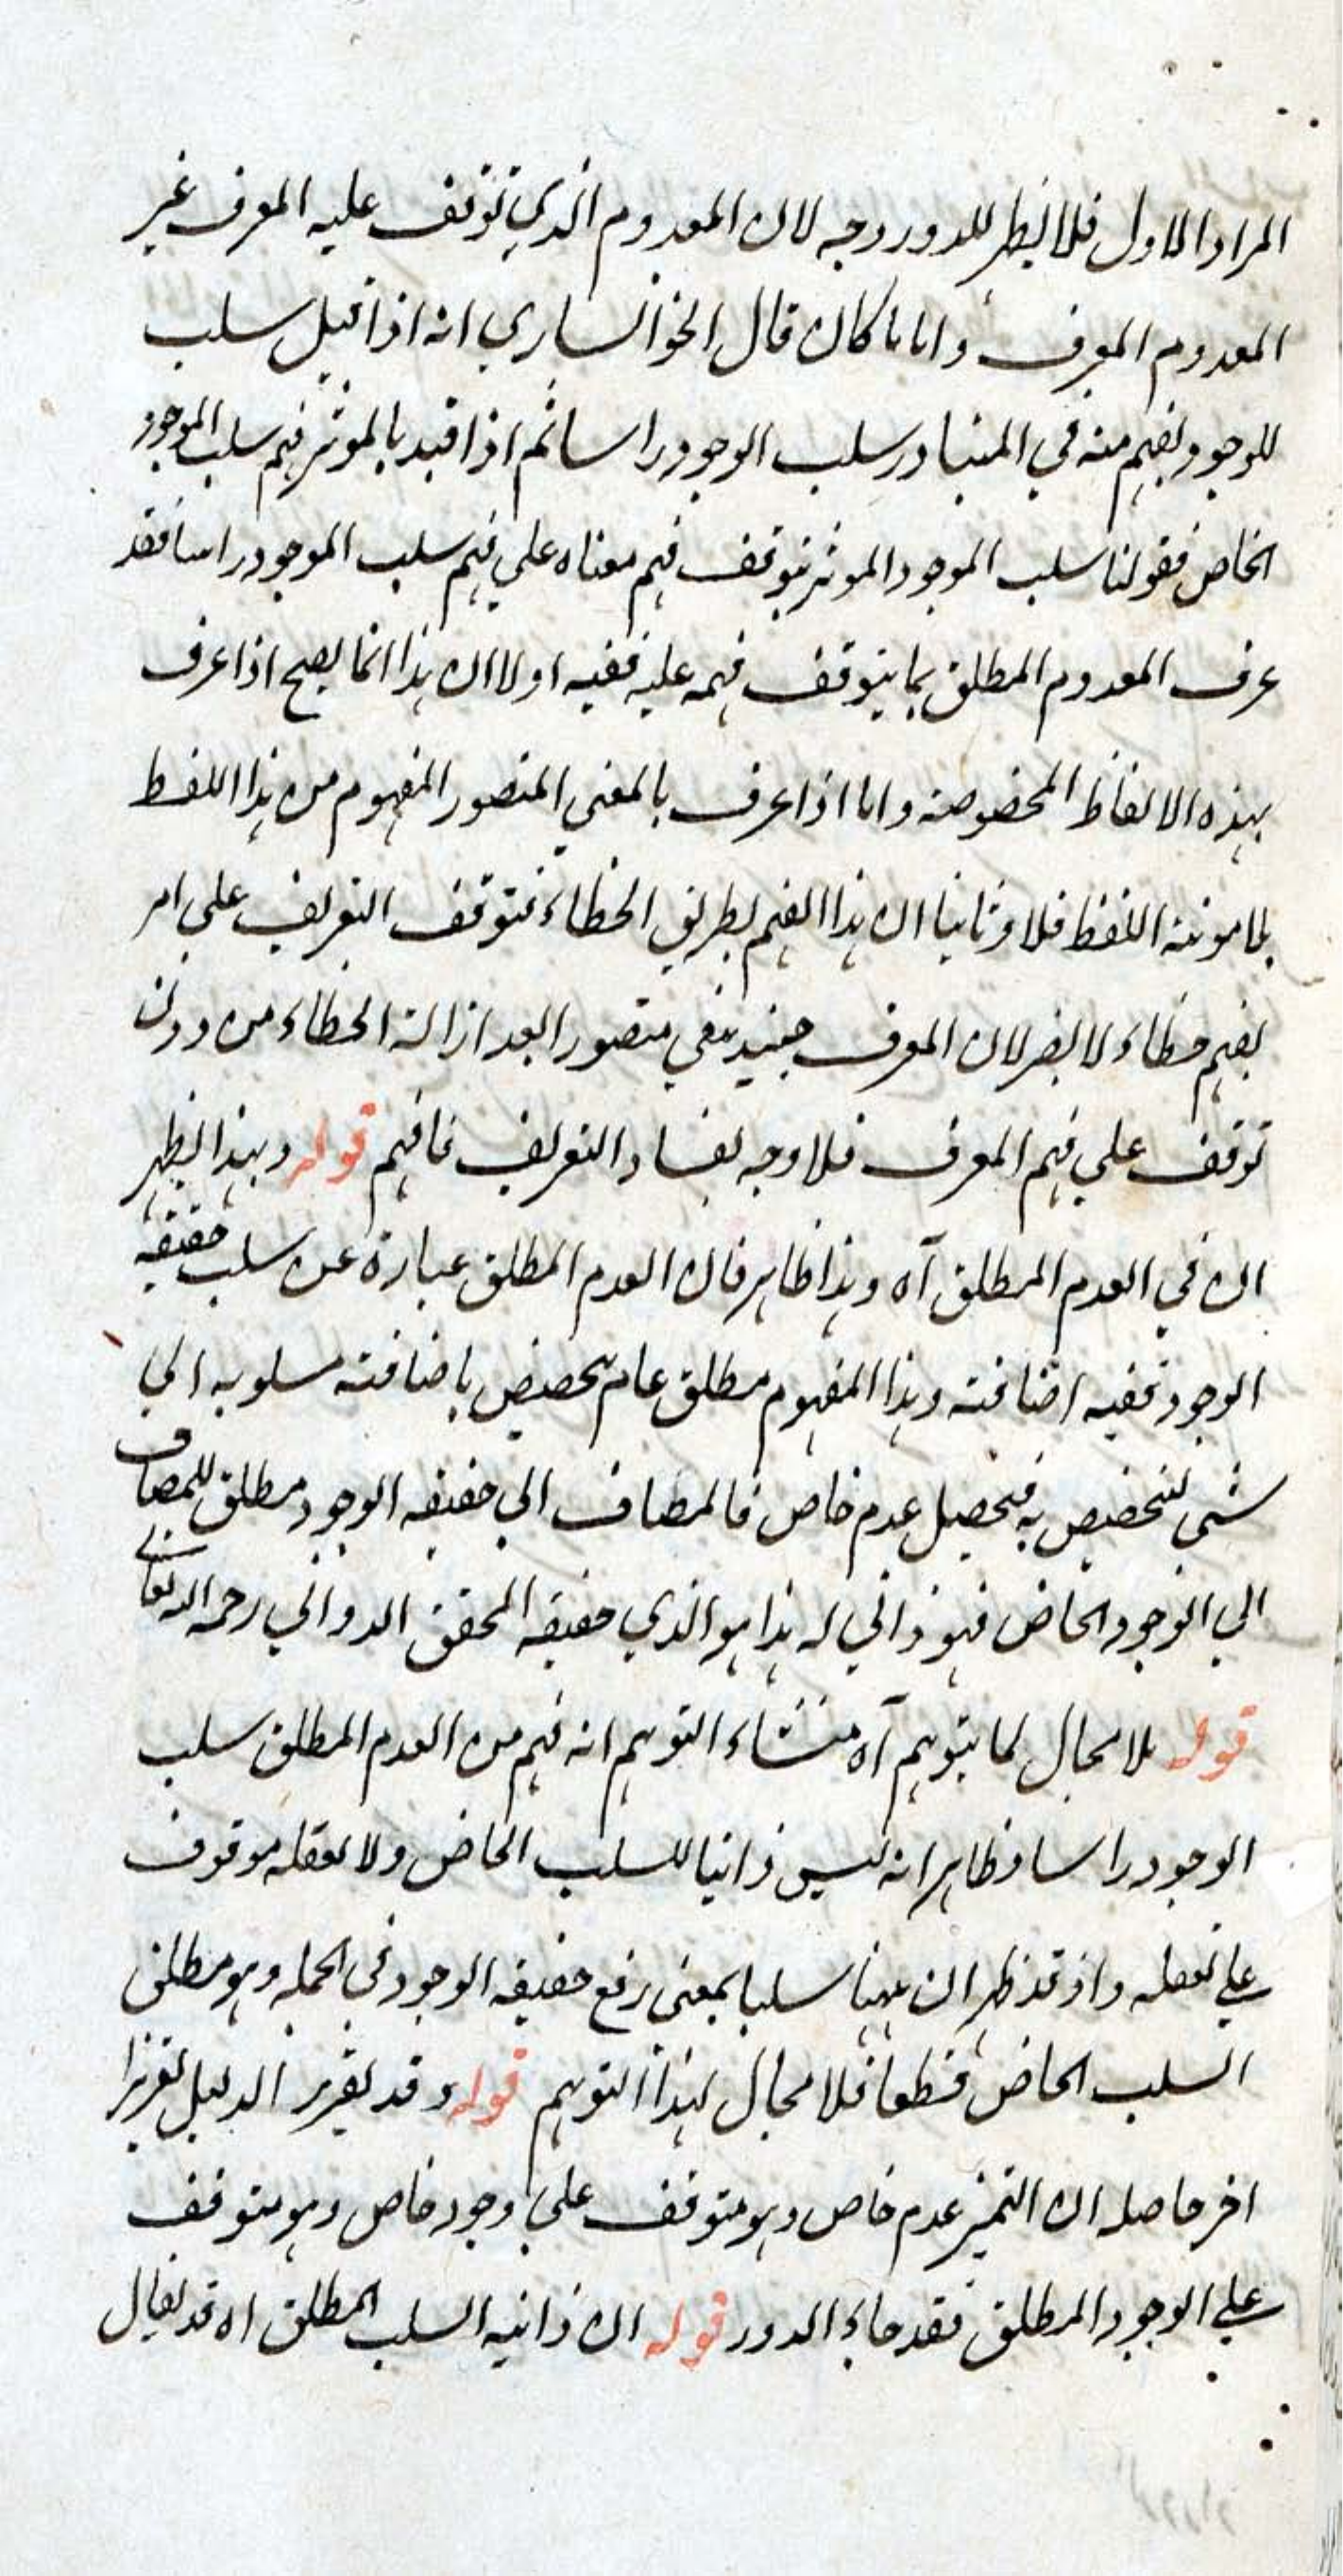 المراد الاول فلا يظهر للدور وجه لان المعدوم الذي توقف عليه المعرف غير
المعدوم المعرف واما ما كان قال الخوانساري انه اذا قيل سلب
للوجود يفهم منه في المتبادر سلب الوجود راسا ثم اذا قيد بالموثر فهم سلب الموجود
الخاص فقولنا سلب الموجود الموثر يتوقف فهم معناه علي فهم سلب الموجود راسا فقد
عرف المعدوم المطلق بما يتوقف فهمه عليه ففيه اولا ان هذا انما يصح اذا عرف
بهذه الالفاظ المخصوصة واما اذا عرف بالمعني المتصور المفهوم من هذا اللفظ
بلا مونة اللفظ فلا وثانيا ان هذا الفهم بطريق الخطاء فتوقف التعريف علي امر
يفهم خطاء لا يضر لان المعرف حينئذ يبقي متصورا بعد ازالة الخطاء من دون
توقف علي فهم المعرف فلا وجه لفساد التعريف فافهم قوله وبهذا يظهر
ان في العدم المطلق آه وهذا ظاهر فان العدم المطلق عبارة عن سلب حقيقه
الوجود ففيه اضافته وهذا المفهوم مطلق عام يتخصص باضافته مسلوبه الي
شي لتخصيص به فيحصل عدم خاص فالمضاف الي حقيقه الوجود مطلق للمضاف
الي الوجود الخاص فهو ذاتي له هذا هو الذي حقيقه المحقق الدواني رحمه الله تعالي
قوله بلا مجال لما يتوهم آه منشاء التوهم انه فهم من العدم المطلق سلب
الوجود راسا وظاهر انه ليس ذاتيا للسلب الخاص ولا تعقله موقوف
علي تعقله واذ قد ظهر ان ههنا سلبا بمعني رفع حقيقه الوجود في الجمله وهو مطلق
السلب الخاص قطعا فلا مجال لهذا التوهم قوله وقد يقرر الدليل تقريرا
اخر حاصله ان التميز عدم خاص وهو متوقف علي وجود خاص وهو متوقف
علي الوجود المطلق فقد جاء الدور قوله ان ذاتيه السلب المطلق اه قد يقال